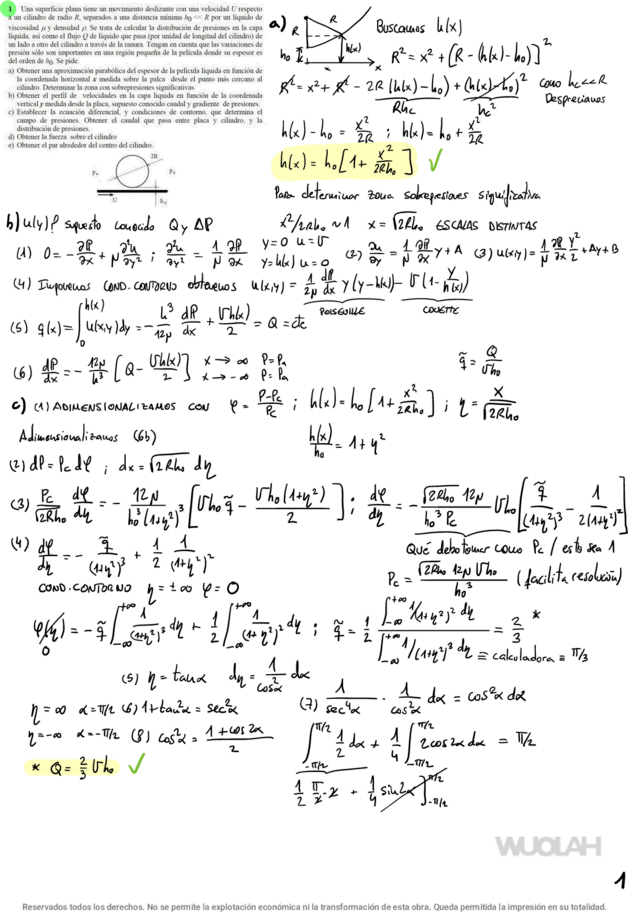 1 Una superficie plana tiene un movimiento deslizante con una velocidad U respecto
a un cilindro de radio R, separados a una distancia mínima h₀ << R por un líquido de
viscosidad μ y densidad ρ. Se trata de calcular la distribución de presiones en la capa
líquida, así como el flujo Q de líquido que pasa (por unidad de longitud del cilindro) de
un lado a otro del cilindro a través de la ranura. Tengan en cuenta que las variaciones de
presión sólo son importantes en una región pequeña de la película donde su espesor es
del orden de h₀. Se pide.
a) Obtener una aproximación parabólica del espesor de la película líquida en función de
la coordenada horizontal x medida sobre la placa desde el punto más cercano al
cilindro. Determinar la zona con sobrepresiones significativas
b) Obtener el perfil de velocidades en la capa líquida en función de la coordenada
vertical y medida desde la placa, supuesto conocido caudal y gradiente de presiones.
c) Establecer la ecuación diferencial, y condiciones de contorno, que determina el
campo de presiones. Obtener el caudal que pasa entre placa y cilindro, y la
distribución de presiones.
d) Obtener la fuerza sobre el cilindro
e) Obtener el par alrededor del centro del cilindro.
2R
Pₐ Pₐ
U h₀
a) R R h₀ h(x) x x
Buscamos h(x)
R² = x² + [R - (h(x) - h₀)]²
R² = x² + R² - 2R (h(x) - h₀) + (h(x) - h₀)² como h_c << R
Rh_c h_c² Despreciamos
h(x) - h₀ = x²/2R ; h(x) = h₀ + x²/2R
h(x) = h₀ [1 + x²/2Rh₀] ✓
Para determinar zona sobrepresiones significativa
x²/2Rh₀ ~ 1 x = √2Rh₀ ESCALAS DISTINTAS
b) u(y)? supuesto conocido Q y ΔP
(1) 0 = -∂P/∂x + μ ∂²u/∂y² ; ∂²u/∂y² = 1/μ ∂P/∂x y=0 u=U y=h(x) u=0 (2) ∂u/∂y = 1/μ ∂P/∂x y + A (3) u(x,y) = 1/μ ∂P/∂x y²/2 + Ay + B
(4) Imponemos COND. CONTORNO obtenemos u(x,y) = 1/2μ dP/dx y (y - h(x)) - U (1 - y/h(x))
POISEUILLE COUETTE
(5) q(x) = ∫₀^h(x) u(x,y) dy = - h³/12μ dP/dx + Uh(x)/2 = Q = cte
(6) dP/dx = - 12μ/h³ [Q - Uh(x)/2] x → ∞ P = Pa x → -∞ P = Pa
q̃ = Q/Uh₀
c) (1) ADIMENSIONALIZAMOS CON φ = P-Pc/Pc ; h(x) = h₀ [1 + x²/2Rh₀] ; η = x/√2Rh₀
Adimensionalizamos (6b) h(x)/h₀ = 1 + η²
(2) dP = Pc dφ ; dx = √2Rh₀ dη
(3) Pc/√2Rh₀ dφ/dη = - 12μ/h₀³(1+η²)³ [Uh₀ q̃ - Uh₀(1+η²)/2] ; dφ/dη = - √2Rh₀ 12μ/h₀³ Pc Uh₀ [q̃/(1+η²)³ - 1/2(1+η²)²]
(4) dφ/dη = - q̃/(1+η²)³ + 1/2 1/(1+η²)²
Qué debo tomar como Pc / esto sea 1
COND. CONTORNO η = ±∞ φ = 0
Pc = √2Rh₀ 12μ Uh₀/h₀³ (facilita resolución)
φ(η) = - q̃ ∫₋∞^+∞ 1/(1+η²)³ dη + 1/2 ∫₋∞^+∞ 1/(1+η²)² dη ; q̃ = 1/2 ∫₋∞^+∞ 1/(1+η²)² dη / ∫₋∞^+∞ 1/(1+η²)³ dη = 2/3 *
0
≡ calculadora ≡ π/3
(5) η = tanα dη = 1/cos²α dα
η = ∞ α = π/2 (6) 1+tan²α = sec²α (7) 1/sec⁴α · 1/cos²α dα = cos²α dα
η = -∞ α = -π/2 (8) cos²α = 1+cos2α/2
∫₋π/2^π/2 1/2 dα + 1/4 ∫₋π/2^π/2 2cos2α dα = π/2
* Q = 2/3 Uh₀ ✓
1/2 π/2 · 2 + 1/4 sin2α ]₋π/2^π/2
WUOLAH
1
Reservados todos los derechos. No se permite la explotación económica ni la transformación de esta obra. Queda permitida la impresión en su totalidad.